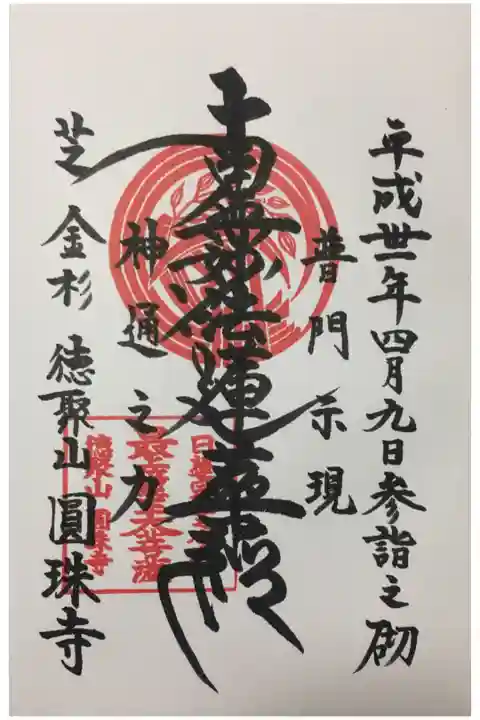 平成卅一年四月九日参詣之砌
普門示現
南無妙法蓮華経
神通之力
芝金杉徳聚山圓珠寺
徳聚山圓珠寺